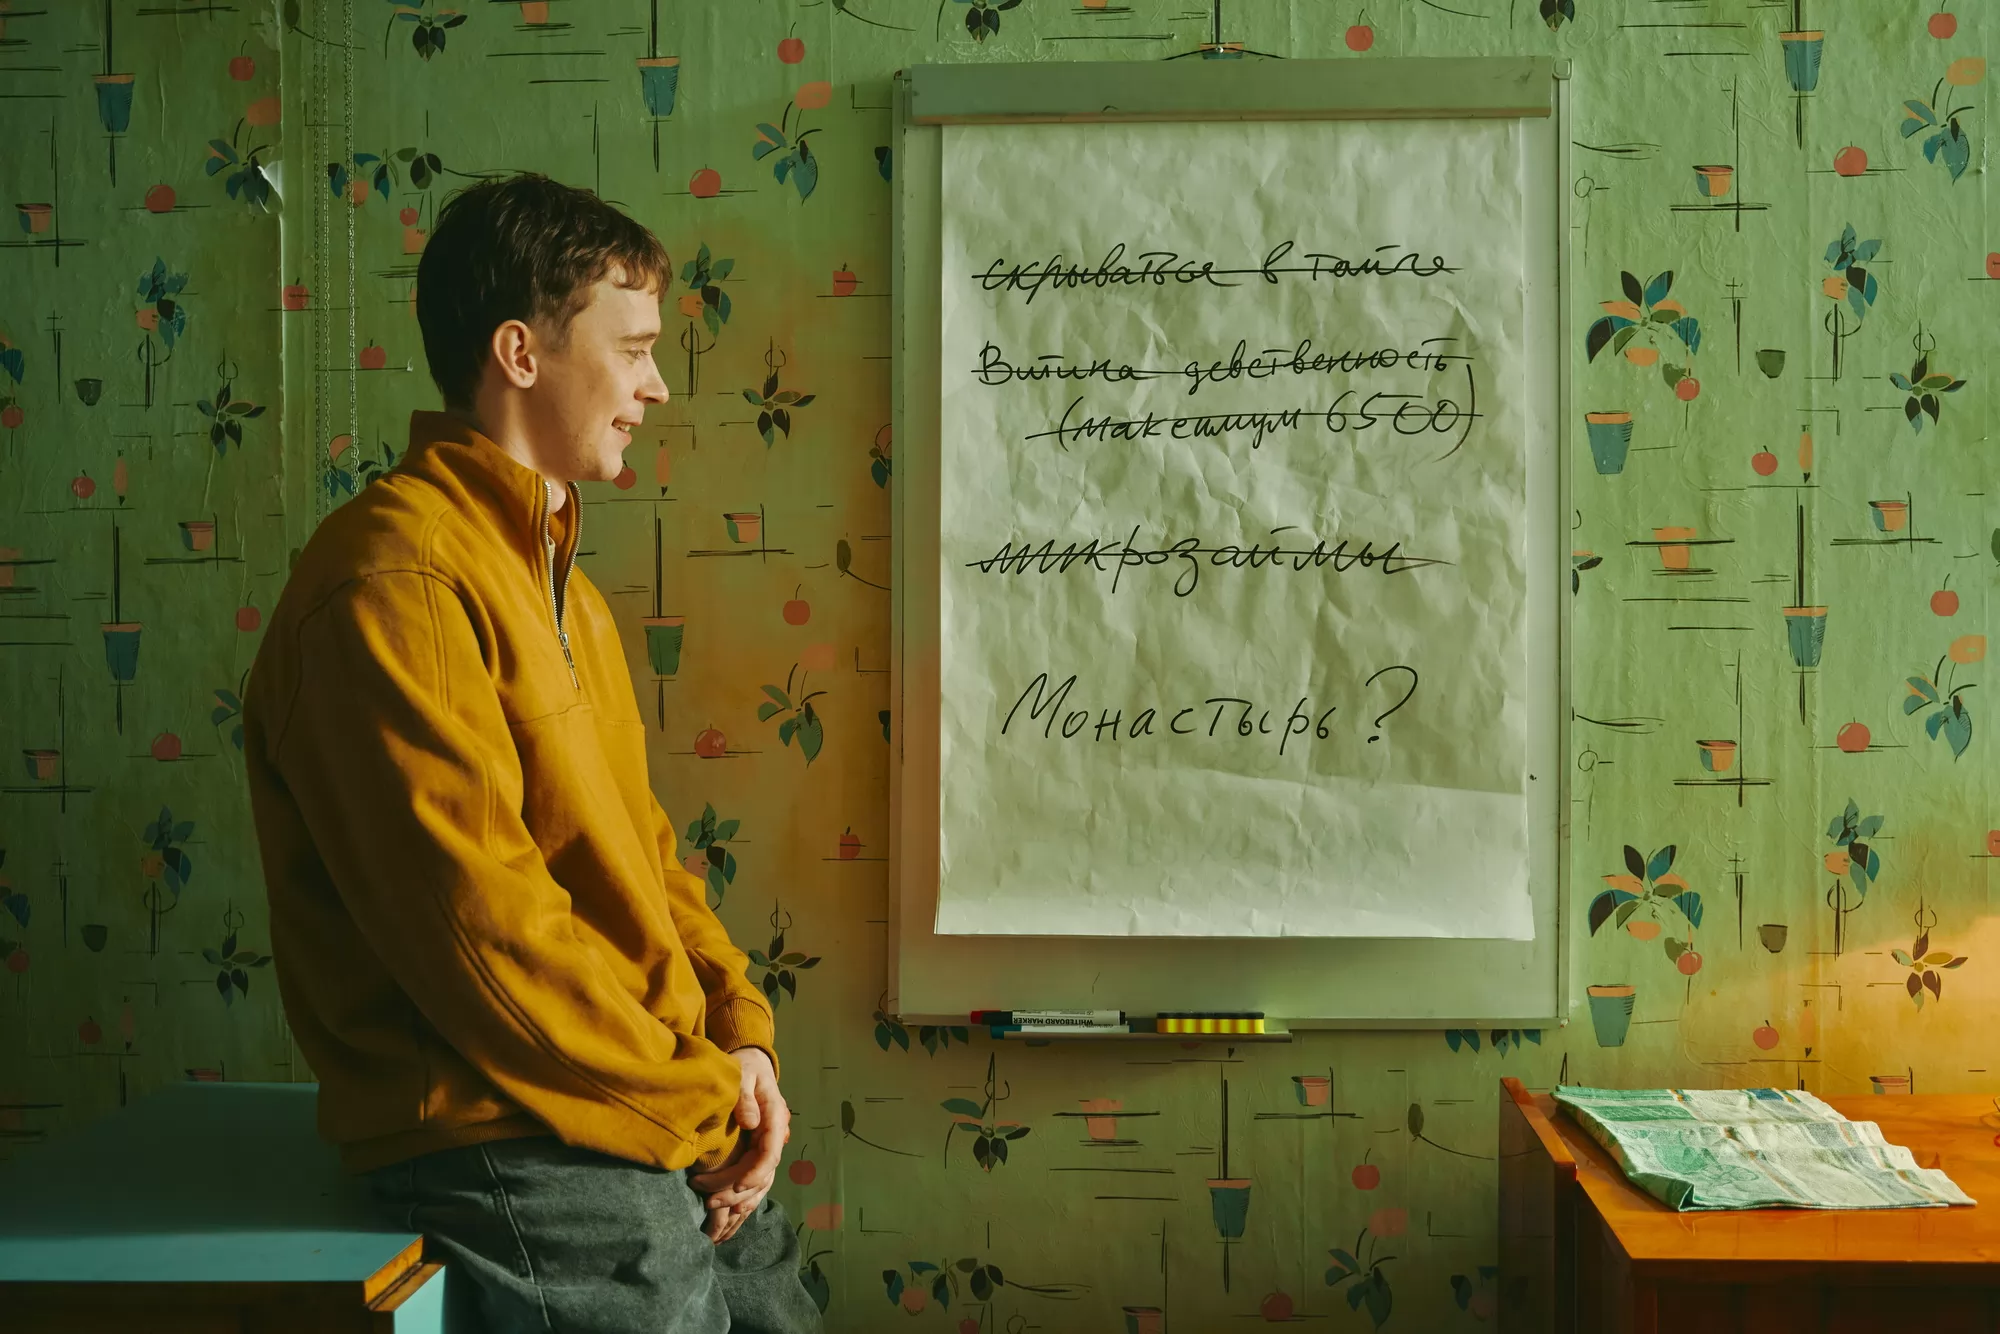 скрываться в тайге
Витина девственность
(максимум 6500)
микрозаймы
Монастырь?
WHITEBOARD MARKER